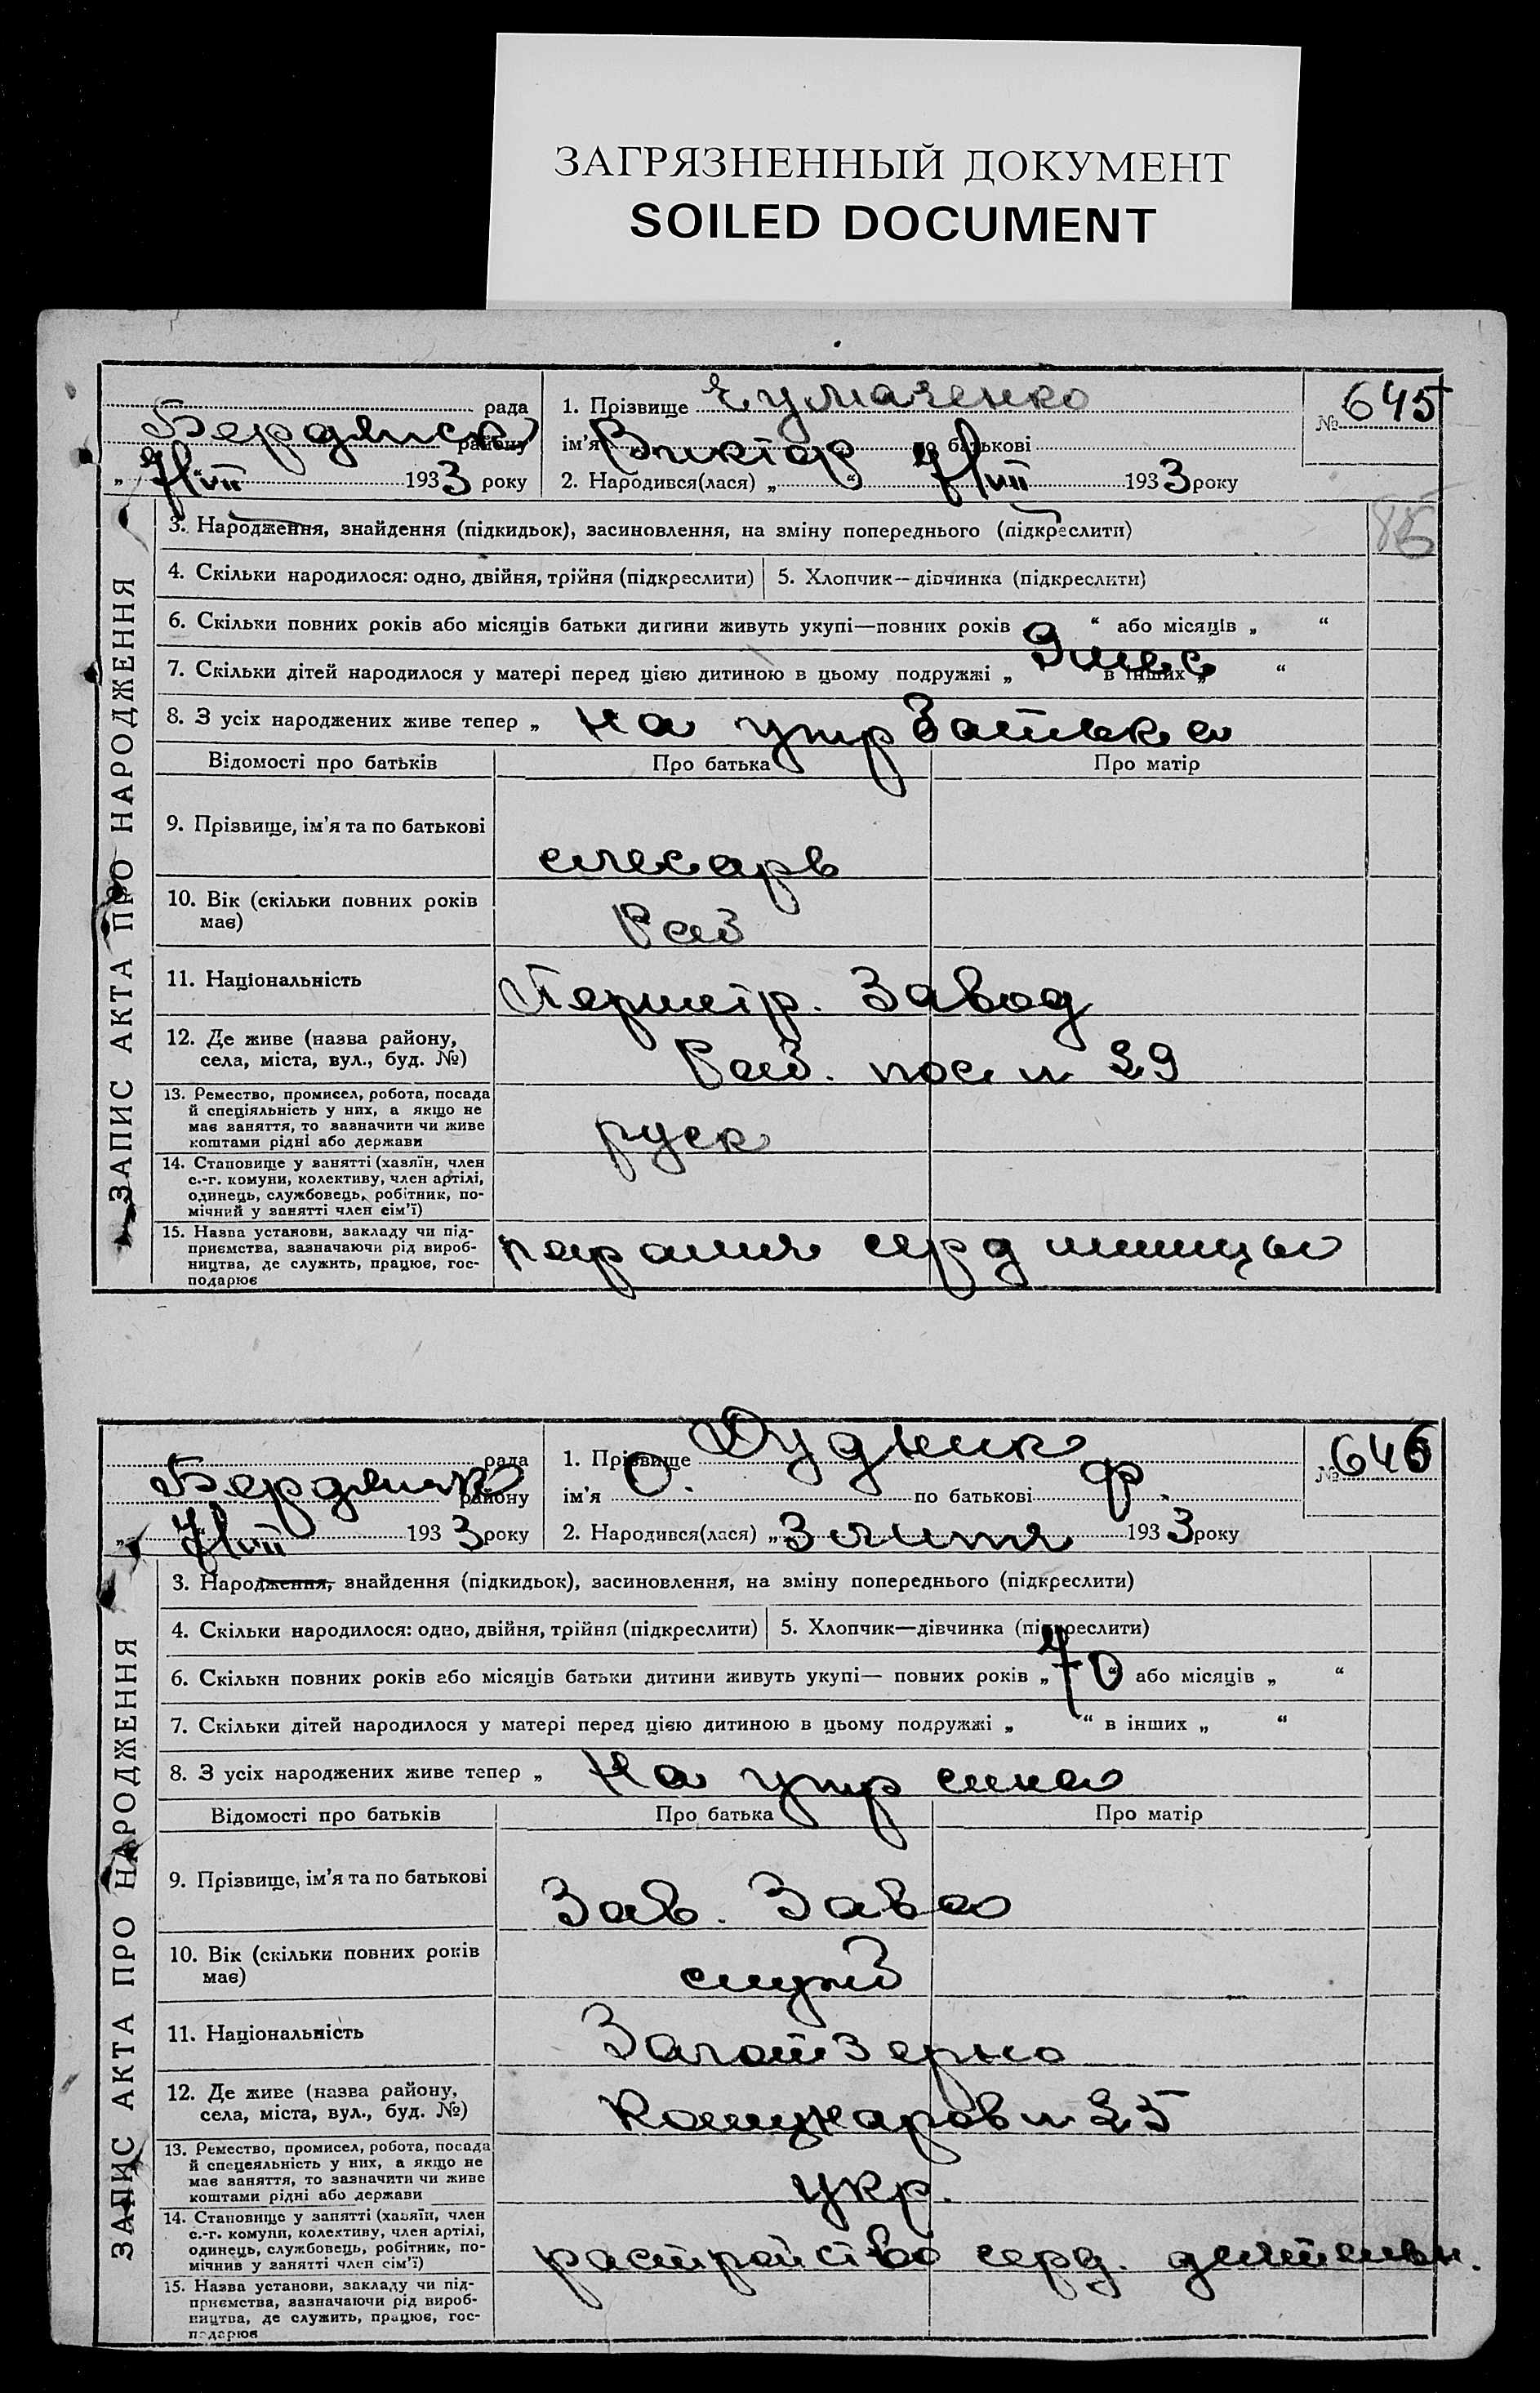 ЗАГРЯЗНЕННЫЙ ДОКУМЕНТ
SOILED DOCUMENT
ЗАПИС АКТА ПРО НАРОДЖЕННЯ
рада
Бердянск
району
„ 7/VIII 1933 року
1. Прізвище Чумаченко
ім'я Виктор по батькові
2. Народився(лася) „ “ 7/VIII 1933 року
№ 645
85
3. Народження, знайдення (підкидьок), засиновлення, на зміну попереднього (підкреслити)
4. Скільки народилося: одно, двійня, трійня (підкреслити)
5. Хлопчик—дівчинка (підкреслити)
6. Скільки повних років або місяців батьки дитини живуть укупі—повних років “ або місяців „ “
9 мес
7. Скільки дітей народилося у матері перед цією дитиною в цьому подружжі „ в інших „ “
8. З усіх народжених живе тепер „ на упр батька
Відомості про батьків
Про батька
Про матір
9. Прізвище, ім'я та по батькові
слесарь
10. Вік (скільки повних років має)
Раб
11. Національність
Первтр. Завод
12. Де живе (назва району, села, міста, вул., буд. №)
Раб. пос н 29
13. Ремество, промисел, робота, посада
й спеціяльність у них, а якщо не
має заняття, то зазначити чи живе
коштами рідні або держави
руск
14. Становище у занятті (хазяїн, член
с.-г. комуни, колективу, член артілі,
одинець, службовець, робітник, по-
мічний у занятті член сім'ї)
15. Назва установи, закладу чи під-
приємства, зазначаючи рід вироб-
ництва, де служить, працює, гос-
подарює
серд мышцы
ЗАПИС АКТА ПРО НАРОДЖЕННЯ
рада
Бердянск
району
„ 7/VIII 1933 року
1. Прізвище Дудник
ім'я О. по батькові Ф.
2. Народився(лася) „ 1933 року
№ 646
3. Народження, знайдення (підкидьок), засиновлення, на зміну попереднього (підкреслити)
4. Скільки народилося: одно, двійня, трійня (підкреслити)
5. Хлопчик—дівчинка (підкреслити)
6. Скільки повних років або місяців батьки дитини живуть укупі— повних років „ 70 “ або місяців „ “
7. Скільки дітей народилося у матері перед цією дитиною в цьому подружжі „ “ в інших „ “
8. З усіх народжених живе тепер „ На упр сина
Відомості про батьків
Про батька
Про матір
9. Прізвище, ім'я та по батькові
Зав.
10. Вік (скільки повних років має)
служб
11. Національність
Заготзерно
12. Де живе (назва району, села, міста, вул., буд. №)
13. Ремество, промисел, робота, посада
й спецеяльність у них, а якщо не
має заняття, то зазначити чи живе
коштами рідні або держави
укр.
14. Становище у занятті (хазяїн, член
с.-г. комуни, колективу, член артілі,
одинець, службовець, робітник, по-
мічний у занятті член сім'ї)
растройство серд. деятельн.
15. Назва установи, закладу чи під-
приємства, зазначаючи рід вироб-
ництва, де служить, працює, гос-
подарює